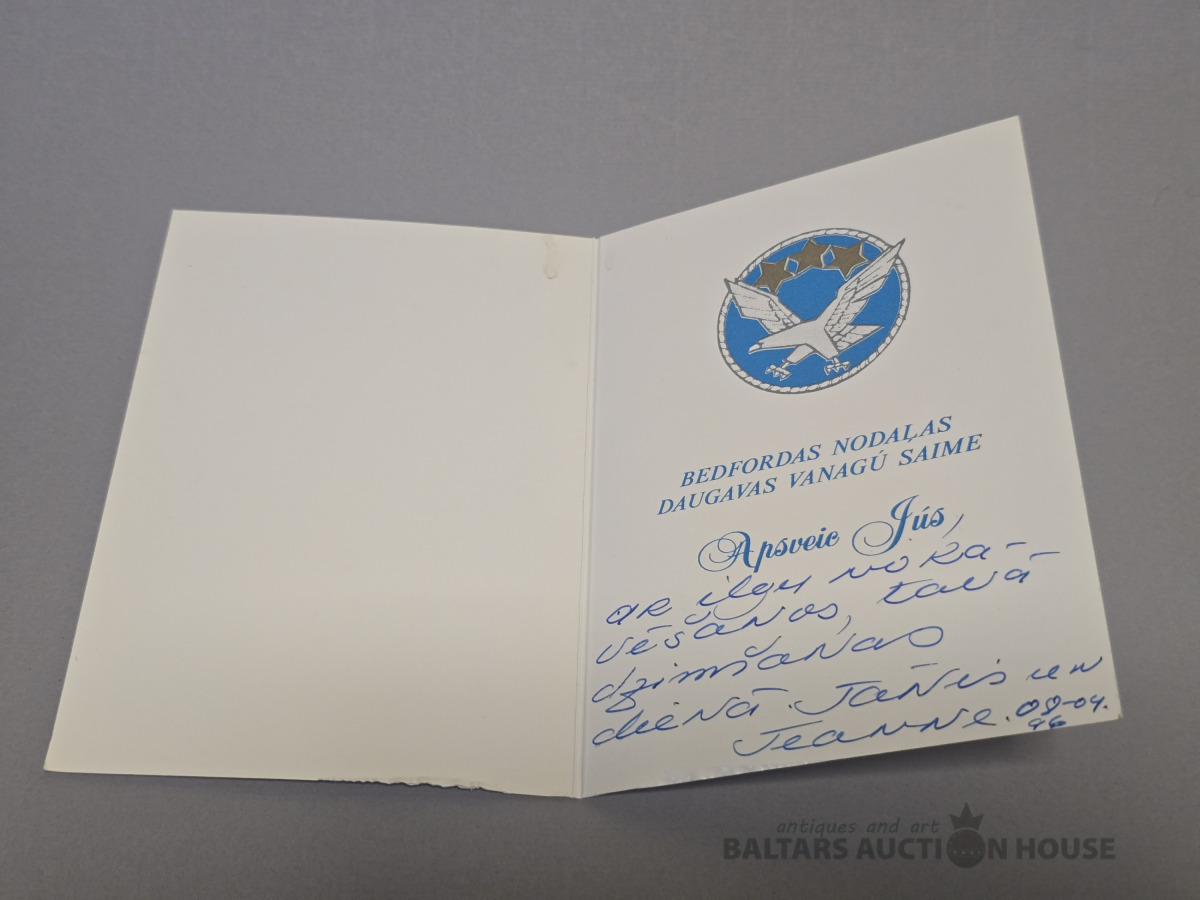 BEDFORDAS NODAĻAS
DAUGAVAS VANAGÚ SAIME
Apsveic Jús,
ar ilgu nokā-
vēšanos, tavā
dzimšanas
dienā. Jānis un
Jeanne. 09-04.
96
antiques and art
BALTARS AUCTION HOUSE